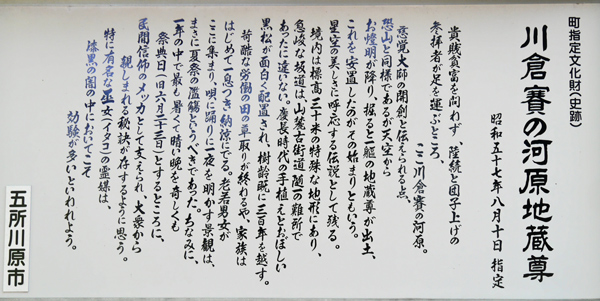 町指定文化財(史跡)
川倉賽の河原地蔵尊
昭和五十七年八月十日 指定
貴賤貧富を問わず、陸続と団子上げの
参拝者が足を運ぶところ、
ここ川倉賽の河原。
慈覚大師の開創と伝えられる点、
恐山と同様であるが天空から
お燈明が降り、掘ると一躯の地蔵尊が出土、
これを安置したのがその始まりともいう。
星空の美しさに呼応する伝説として残る。
境内は標高三十米の特殊な地形にあり、
急峻な坂道は、山麓古街道随一の難所で
あったに違いない。慶長時代の手植えとおぼしい
黒松が面白く配置され、樹齢既に三百年を越す。
苛酷な労働の田の草取りが終わるや、家族は
はじめて一息つき納涼にでる。老若男女が
ここに集まり、唄に踊りに一夜を明かす景観は、
まさに夏祭の濫觴というべきであった。ちなみに、
祭典日(旧六月二十三日)とするところに、
一年の中で最も暑くて暗い晩を奇しくも
民間信仰のメッカとして支えられ、大衆から
親しまれる秘訣が存するように思う。
特に有名な巫女(イタコ)の霊媒は、
漆黒の闇の中においてこそ
効験が多いといわれよう。
五所川原市